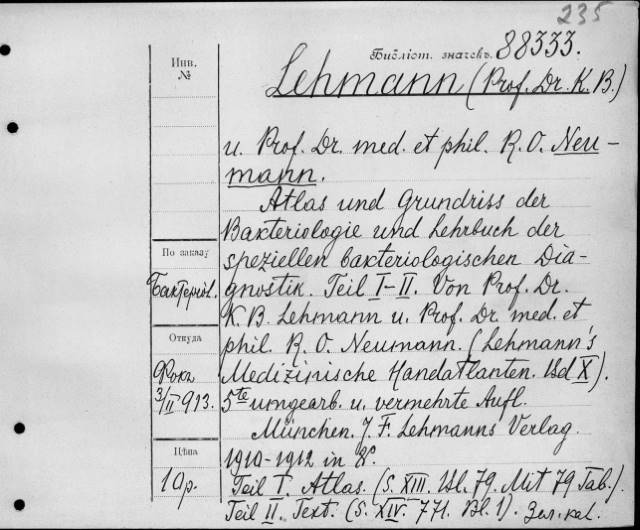 235
Библіот. значекъ. 88333.
Инв.
№
Lehmann (Prof. Dr. K. B.)
u. Prof. Dr. med. et phil. R. O. Neu-
mann.
Atlas und Grundriss der
Bakteriologie und Lehrbuch der
speziellen bakteriologischen Dia-
gnostik. Teil I-II. Von Prof. Dr.
K. B. Lehmann u. Prof. Dr. med. et
phil. R. O. Neumann. (Lehmann's
Medizinische Handatlanten. Bd X).
5te umgearb. u. vermehrte Aufl.
München. J. F. Lehmanns Verlag.
1910-1912 in 8º.
Teil I. Atlas. (S. XIII. Bl. 79. Mit 79 Tab.).
Teil II. Text. (S. XIV. 771. Bl. 1). Зел. кал.
По заказу
Бактеріол.
Откуда
Фокъ
3/II 913.
Цѣна
18р.